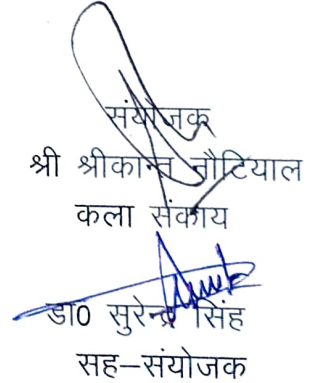 संयोजक
श्री श्रीकान्त नौटियाल
कला संकाय
डा0 सुरेन्द्र सिंह
सह-संयोजक